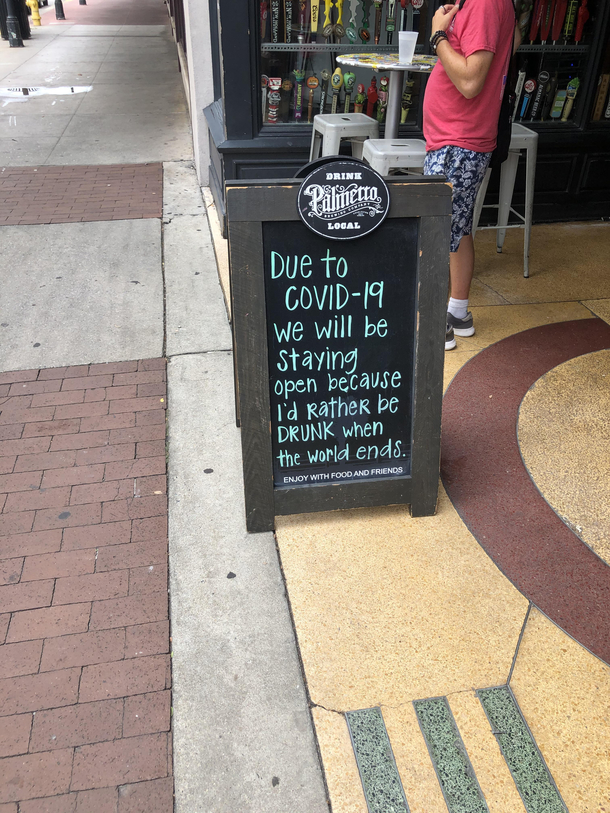 DRINK
Palmetto
BREWING COMPANY
LOCAL
Due to
COVID-19
we will be
staying
open because
I'd rather be
DRUNK when
the world ends.
ENJOY WITH FOOD AND FRIENDS